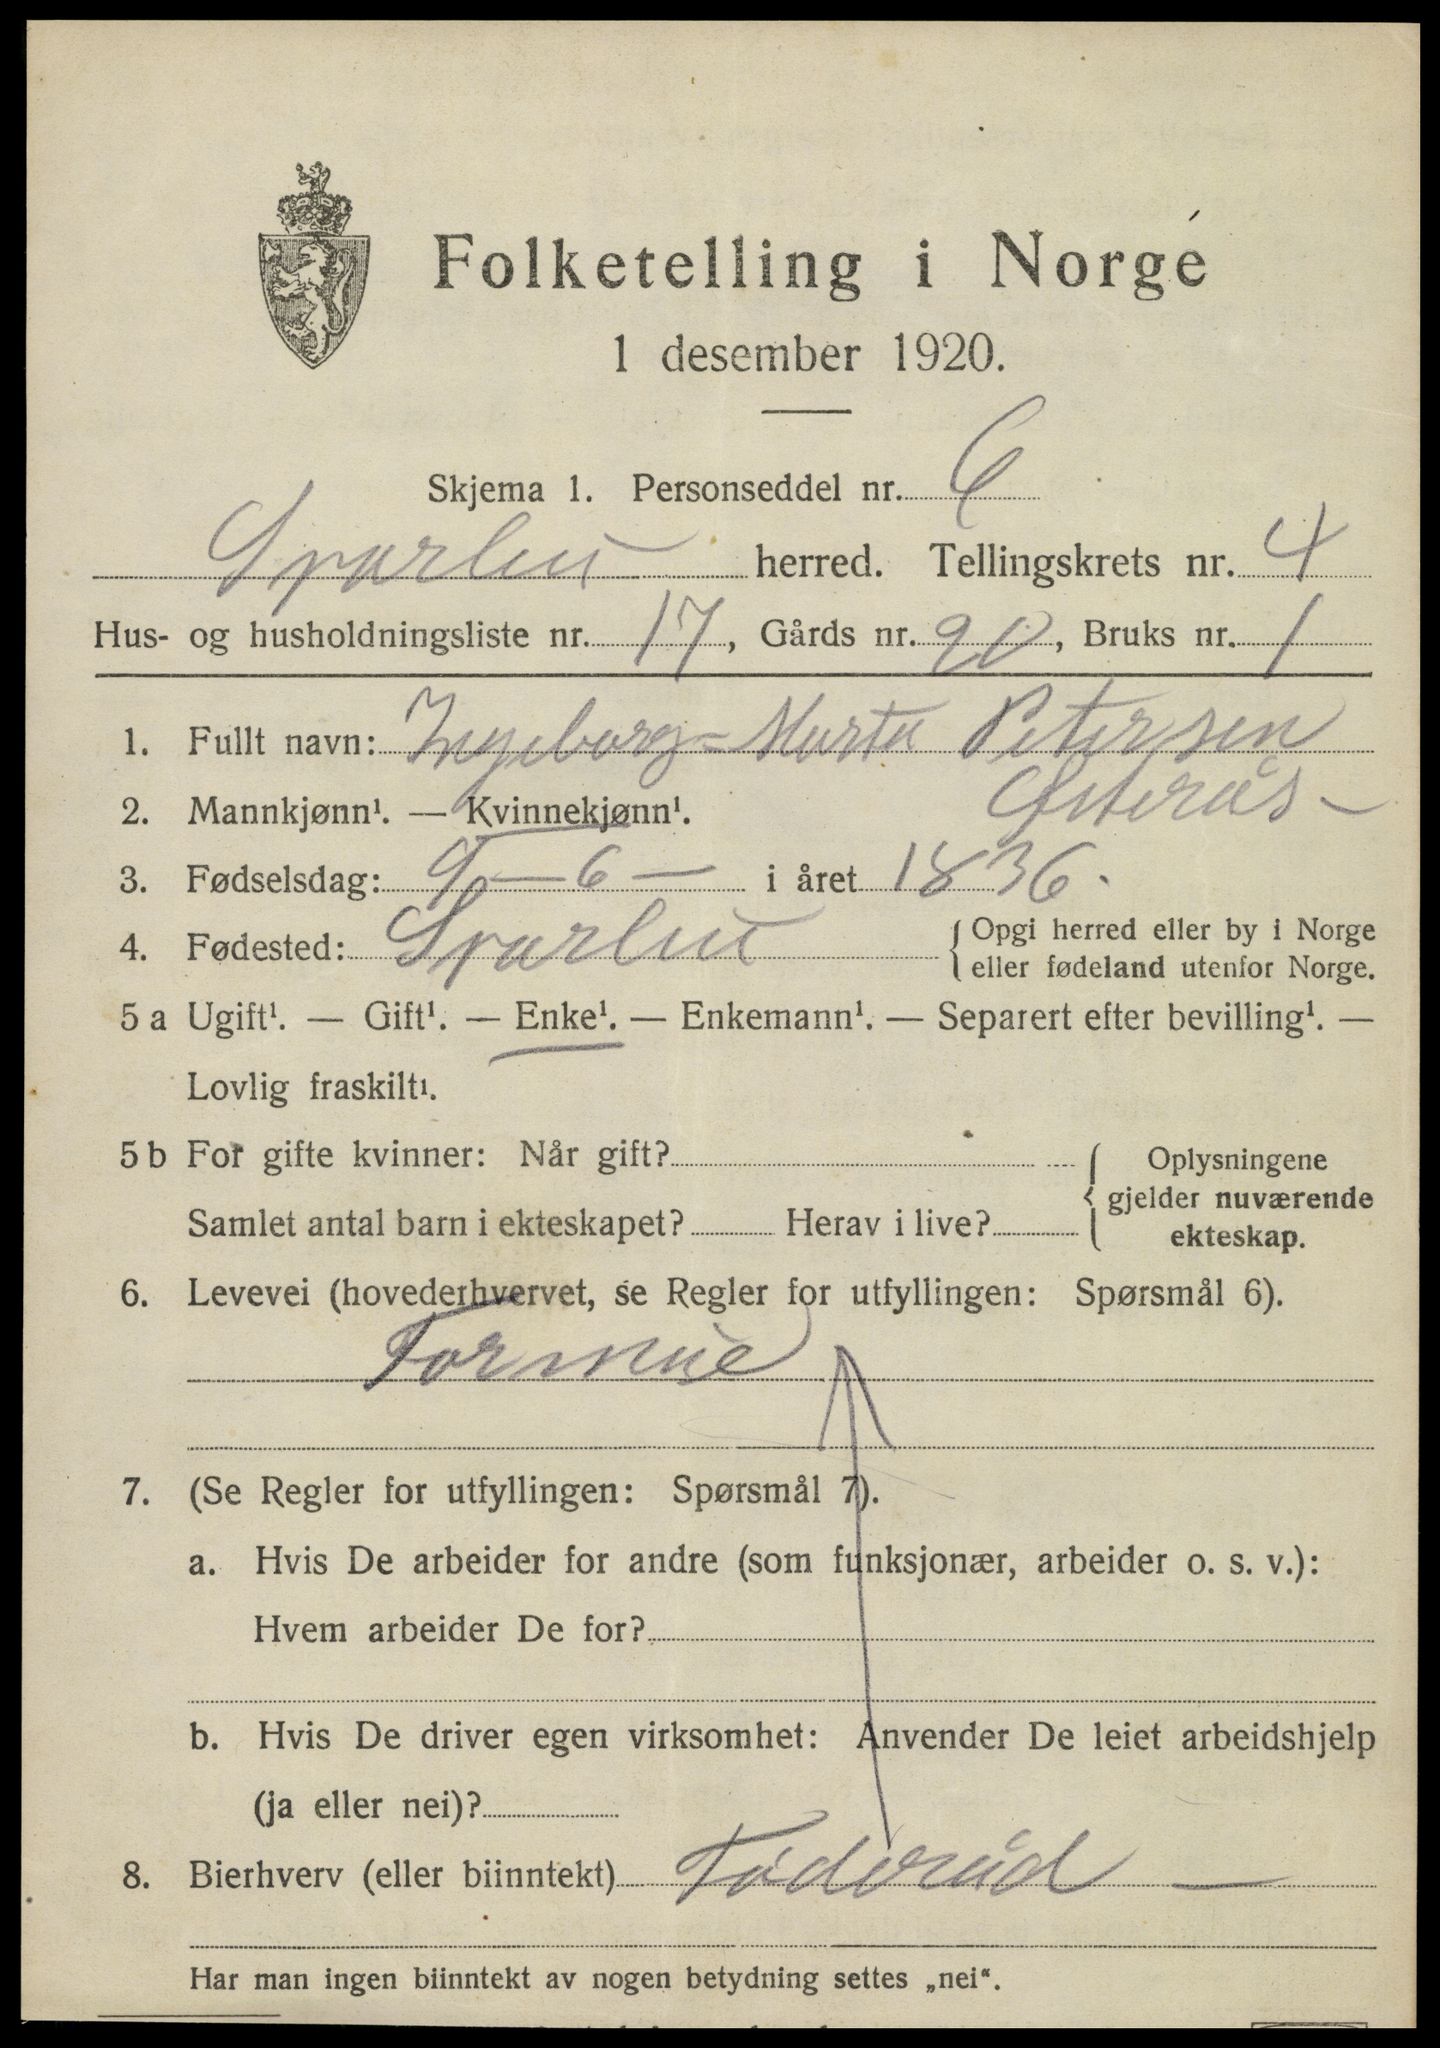 Folketelling i Norge
1 desember 1920.
Skjema 1. Personseddel nr. 6
Sparbu herred. Tellingskrets nr. 4
Hus- og husholdningsliste nr. 17, Gårds nr. 90, Bruks nr. 1
1. Fullt navn: Ingeborg-Marta Petersen
Østerås-
2. Mannkjønn¹. — Kvinnekjønn¹.
3. Fødselsdag: 9 — 6 — i året 1836.
4. Fødested: Sparbu { Opgi herred eller by i Norge
eller fødeland utenfor Norge.
5 a Ugift¹. — Gift¹. — Enke¹. — Enkemann¹. — Separert efter bevilling¹. —
Lovlig fraskilt¹.
5 b For gifte kvinner: Når gift? { Oplysningene
gjelder nuværende
Samlet antal barn i ekteskapet? Herav i live?
ekteskap.
6. Levevei (hovederhvervet, se Regler for utfyllingen: Spørsmål 6).
Formue
7. (Se Regler for utfyllingen: Spørsmål 7).
a. Hvis De arbeider for andre (som funksjonær, arbeider o. s. v.):
Hvem arbeider De for?
b. Hvis De driver egen virksomhet: Anvender De leiet arbeidshjelp
(ja eller nei)?
8. Bierhverv (eller biinntekt) Føderåd —
Har man ingen biinntekt av nogen betydning settes „nei“.